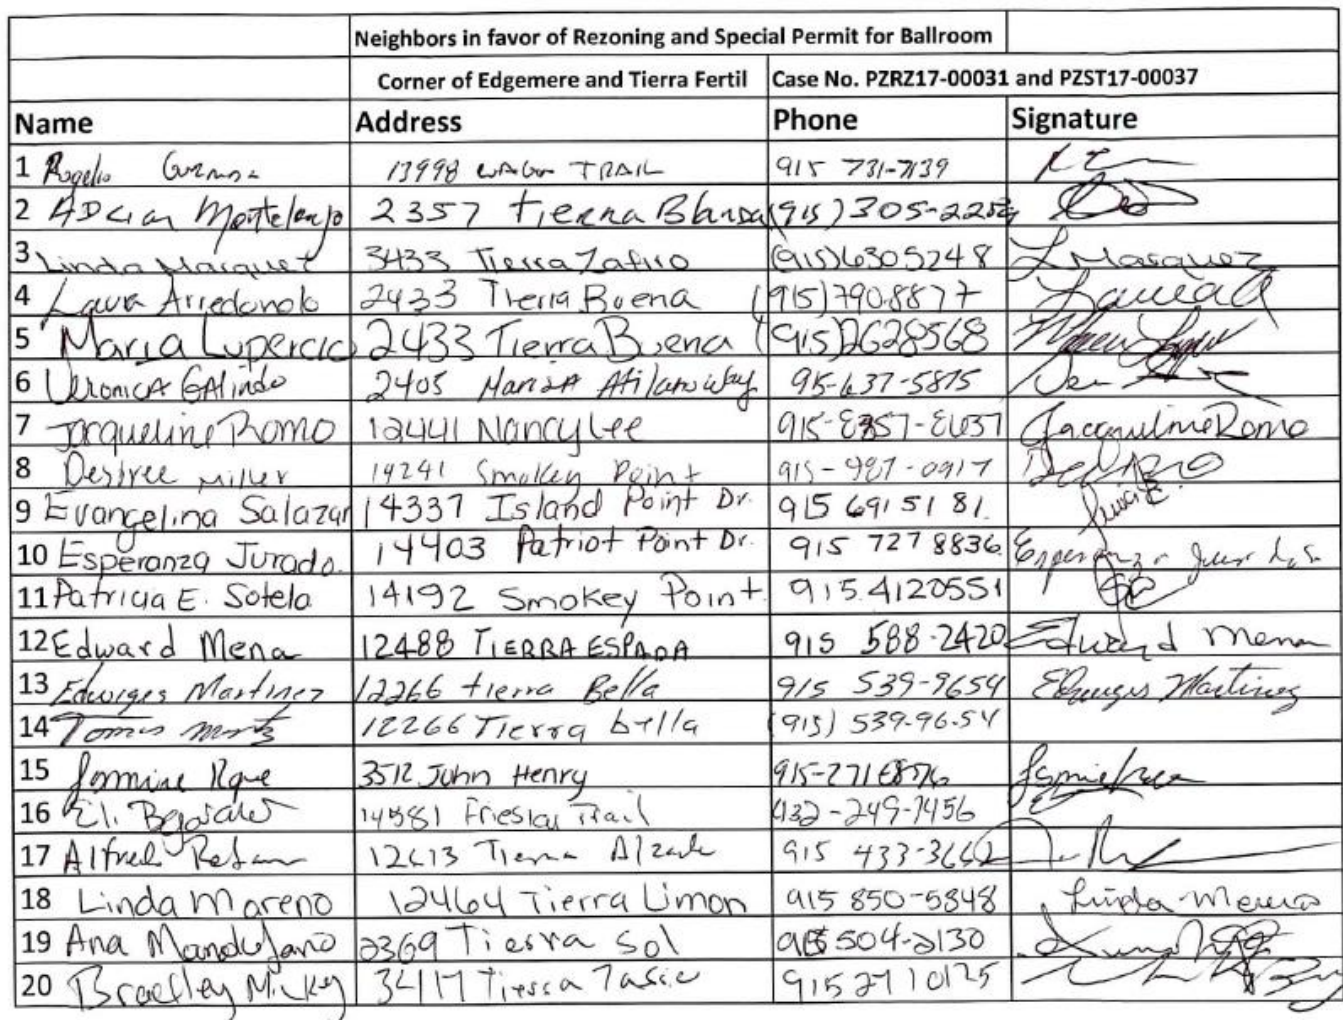 Neighbors in favor of Rezoning and Special Permit for Ballroom
Corner of Edgemere and Tierra Fertil Case No. PZRZ17-00031 and PZST17-00037
Name Address Phone Signature
1 Rogelio 13998 TRAIL 915 731-7139
2 ADrian 2357 tierra Blanca (915)305-2254
3 Linda Marquez 3433 Tierra Zafiro (915)6305248 L Marquez
4 Laura Arredondo 2433 Tierra Buena (915)790.8877 Laura A
5 Maria Lupercio 2433 Tierra Buena (915)2628568
6 VeronicA GAlindo 2405 Atilano Way 915-637-5875
7 Jacqueline Romo 12441 Nancy Lee 915- Jacqueline Romo
8 Desiree Miller 14241 Smokey Point 915-987-0917
9 Evangelina Salazar 14337 Island Point Dr. 915 6915181.
10 Esperanza Jurado. 14403 Patriot Point Dr. 915 727 8836. Esperanza
11 Patricia E. Sotelo 14192 Smokey Point. 915.4120551
12 Edward Mena 12488 TIERRA ESPADA 915 588-2420 Edward Mena
13 Edwiges Martinez 12266 tierra Bella 915 539-9654 Edwiges Martinez
14 Tomas 12266 Tierra bella (915) 539-96-54
15 3512 John Henry 915-
16 Eli 14581 Trail 432-249-7456
17 Alfred 12613 Tierra 915 433-3662
18 Linda Moreno 12464 Tierra Limon 915 850-5848 Linda Moreno
19 Ana 2369 Tierra Sol 915 504-2130
20 Bradley Mickey 3417 Tierra 915 27 10125